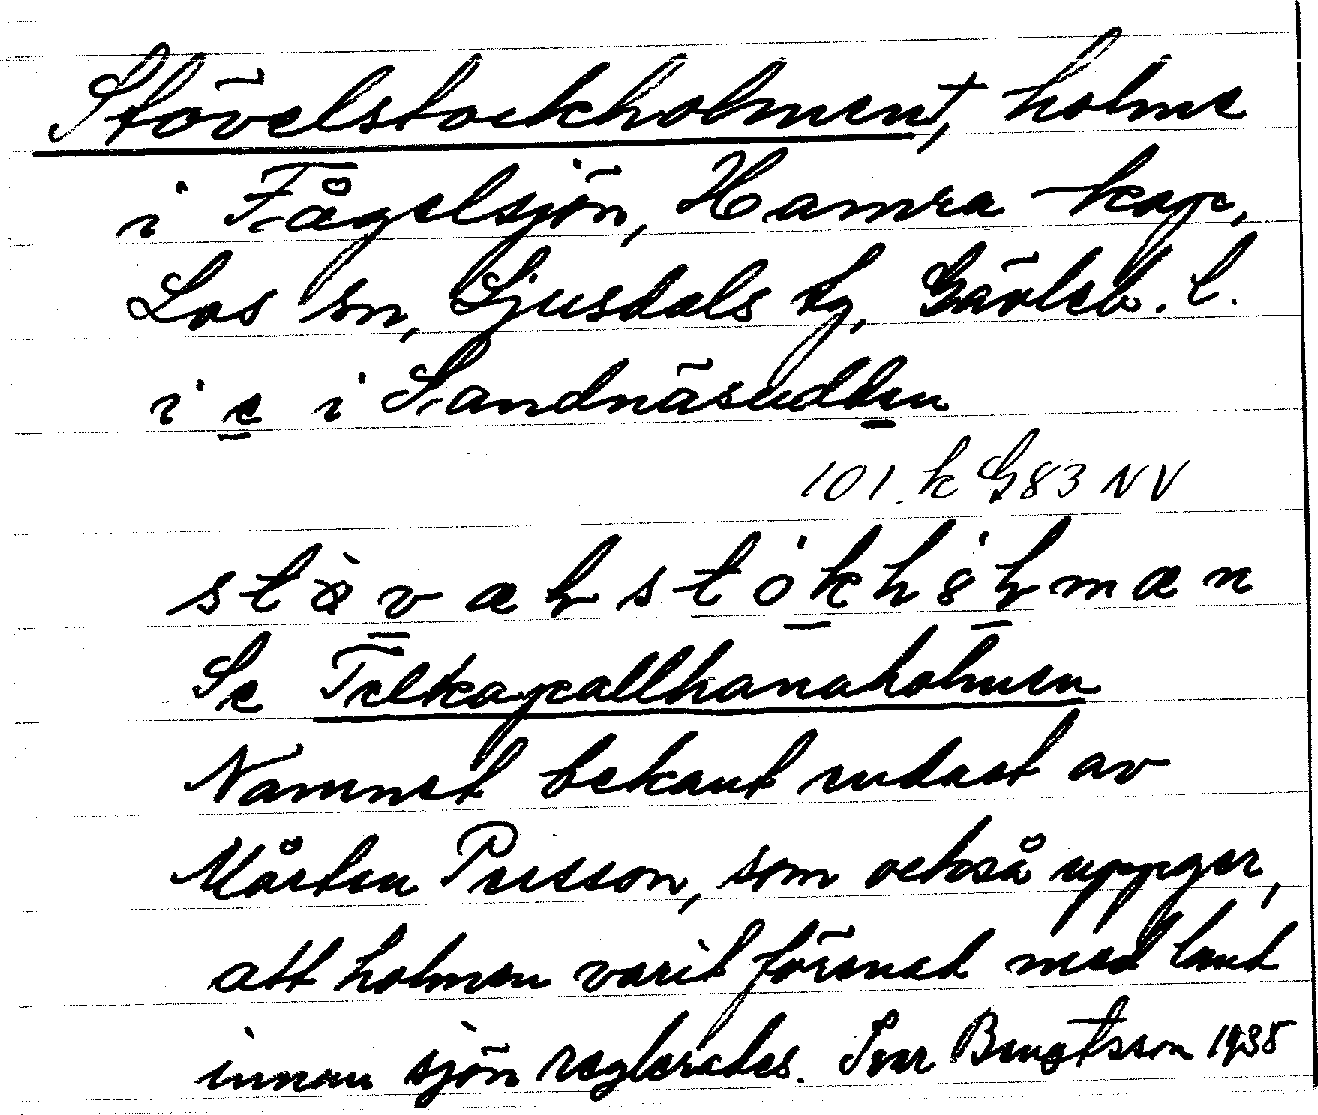 Stövelstockholmen†, holme
i Fågelsjön, Hamra kap,
Los sn, Ljusdals tg, Gävleb. l.
i e i Sandnäsudden
101. k G83 NV
Se Felkapallhanaholmen
Namnet bekant endast av
Mårten Persson, som också uppger,
att holmen varit förenad med land
innan sjön reglerades. Iver Bengtsson 1935